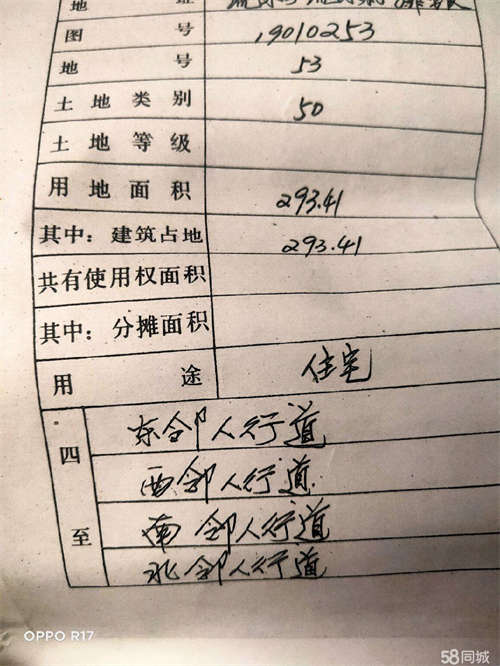 地
图 号 19010253
地 号 53
土 地 类 别 50
土 地 等 级
用 地 面 积 293.41
其中：建筑占地 293.41
共有使用权面积
其中：分摊面积
用 途 住宅
四 至
东邻人行道
西邻人行道
南邻人行道
北邻人行道
OPPO R17
58同城